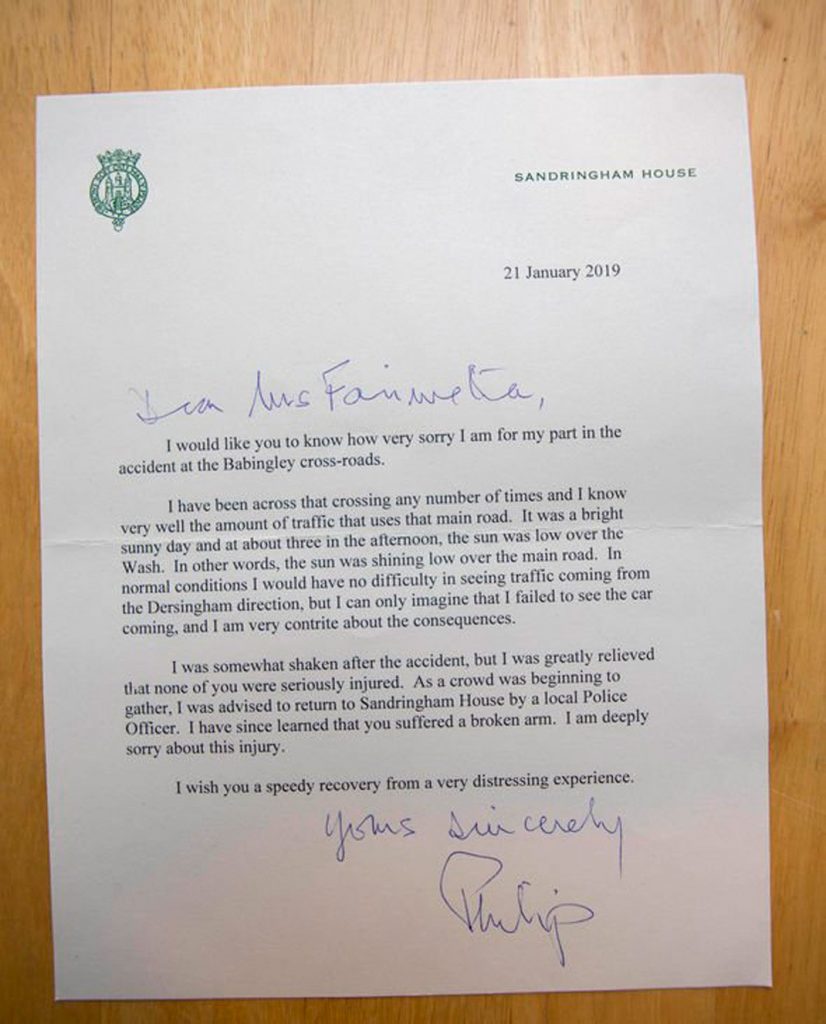 SANDRINGHAM HOUSE
21 January 2019
Dear Ms Fairweather,
I would like you to know how very sorry I am for my part in the
accident at the Babingley cross-roads.
I have been across that crossing any number of times and I know
very well the amount of traffic that uses that main road. It was a bright
sunny day and at about three in the afternoon, the sun was low over the
Wash. In other words, the sun was shining low over the main road. In
normal conditions I would have no difficulty in seeing traffic coming from
the Dersingham direction, but I can only imagine that I failed to see the car
coming, and I am very contrite about the consequences.
I was somewhat shaken after the accident, but I was greatly relieved
that none of you were seriously injured. As a crowd was beginning to
gather, I was advised to return to Sandringham House by a local Police
Officer. I have since learned that you suffered a broken arm. I am deeply
sorry about this injury.
I wish you a speedy recovery from a very distressing experience.
Yours sincerely
Philip